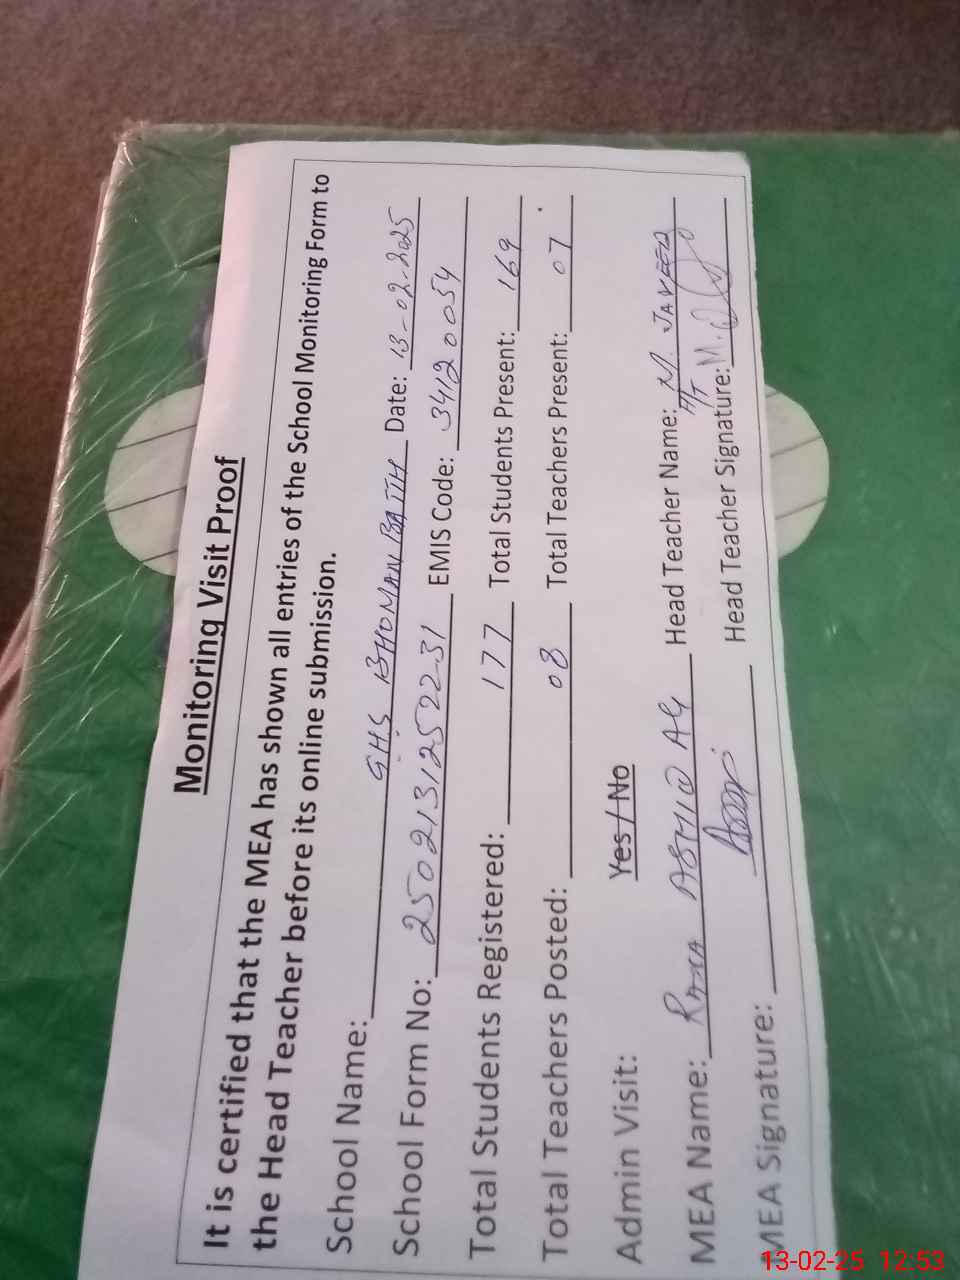 Monitoring Visit Proof
It is certified that the MEA has shown all entries of the School Monitoring Form to
the Head Teacher before its online submission.
School Name: GHS BHOMAN BATH Date: 13-02-2025
School Form No: 2502131252231 EMIS Code: 34120054
Total Students Registered: 177 Total Students Present: 169
Total Teachers Posted: 08 Total Teachers Present: 07
Admin Visit: Yes / No
MEA Name: RANA Head Teacher Name: M. JAVEED
H/T
MEA Signature: Head Teacher Signature: M.
13-02-25 12:53